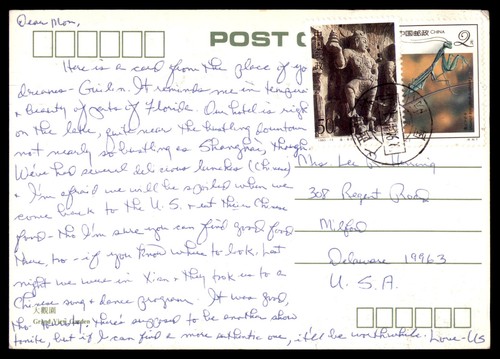 Dear Mom,
POST C
Here is a card from the place of yo
dreams - Guilin. It reminds me in
& beauty of parts of Florida. Our hotel is righ
on the lake, quite near the bustling downtown
not nearly so bustling as Shanghai, though
We've had several delicious lunches (Chinese)
& I'm afraid we will be spoiled when we
come back to the U.S. & eat their Chinese
food - tho I'm sure you can find good food
there, too -- if you know where to look. Last
night we were in Xian & they took us to a
Chinese song & dance program. It was good,
tho there's supposed to be another show
tonite, but if I can find a more authentic one, it'll be worthwhile. Love - US
大觀園
Grand View Garden
中国邮政 CHINA
2元
50
Mrs. Lee
308 Regent Road
Milford
Delaware 19963
U.S.A.